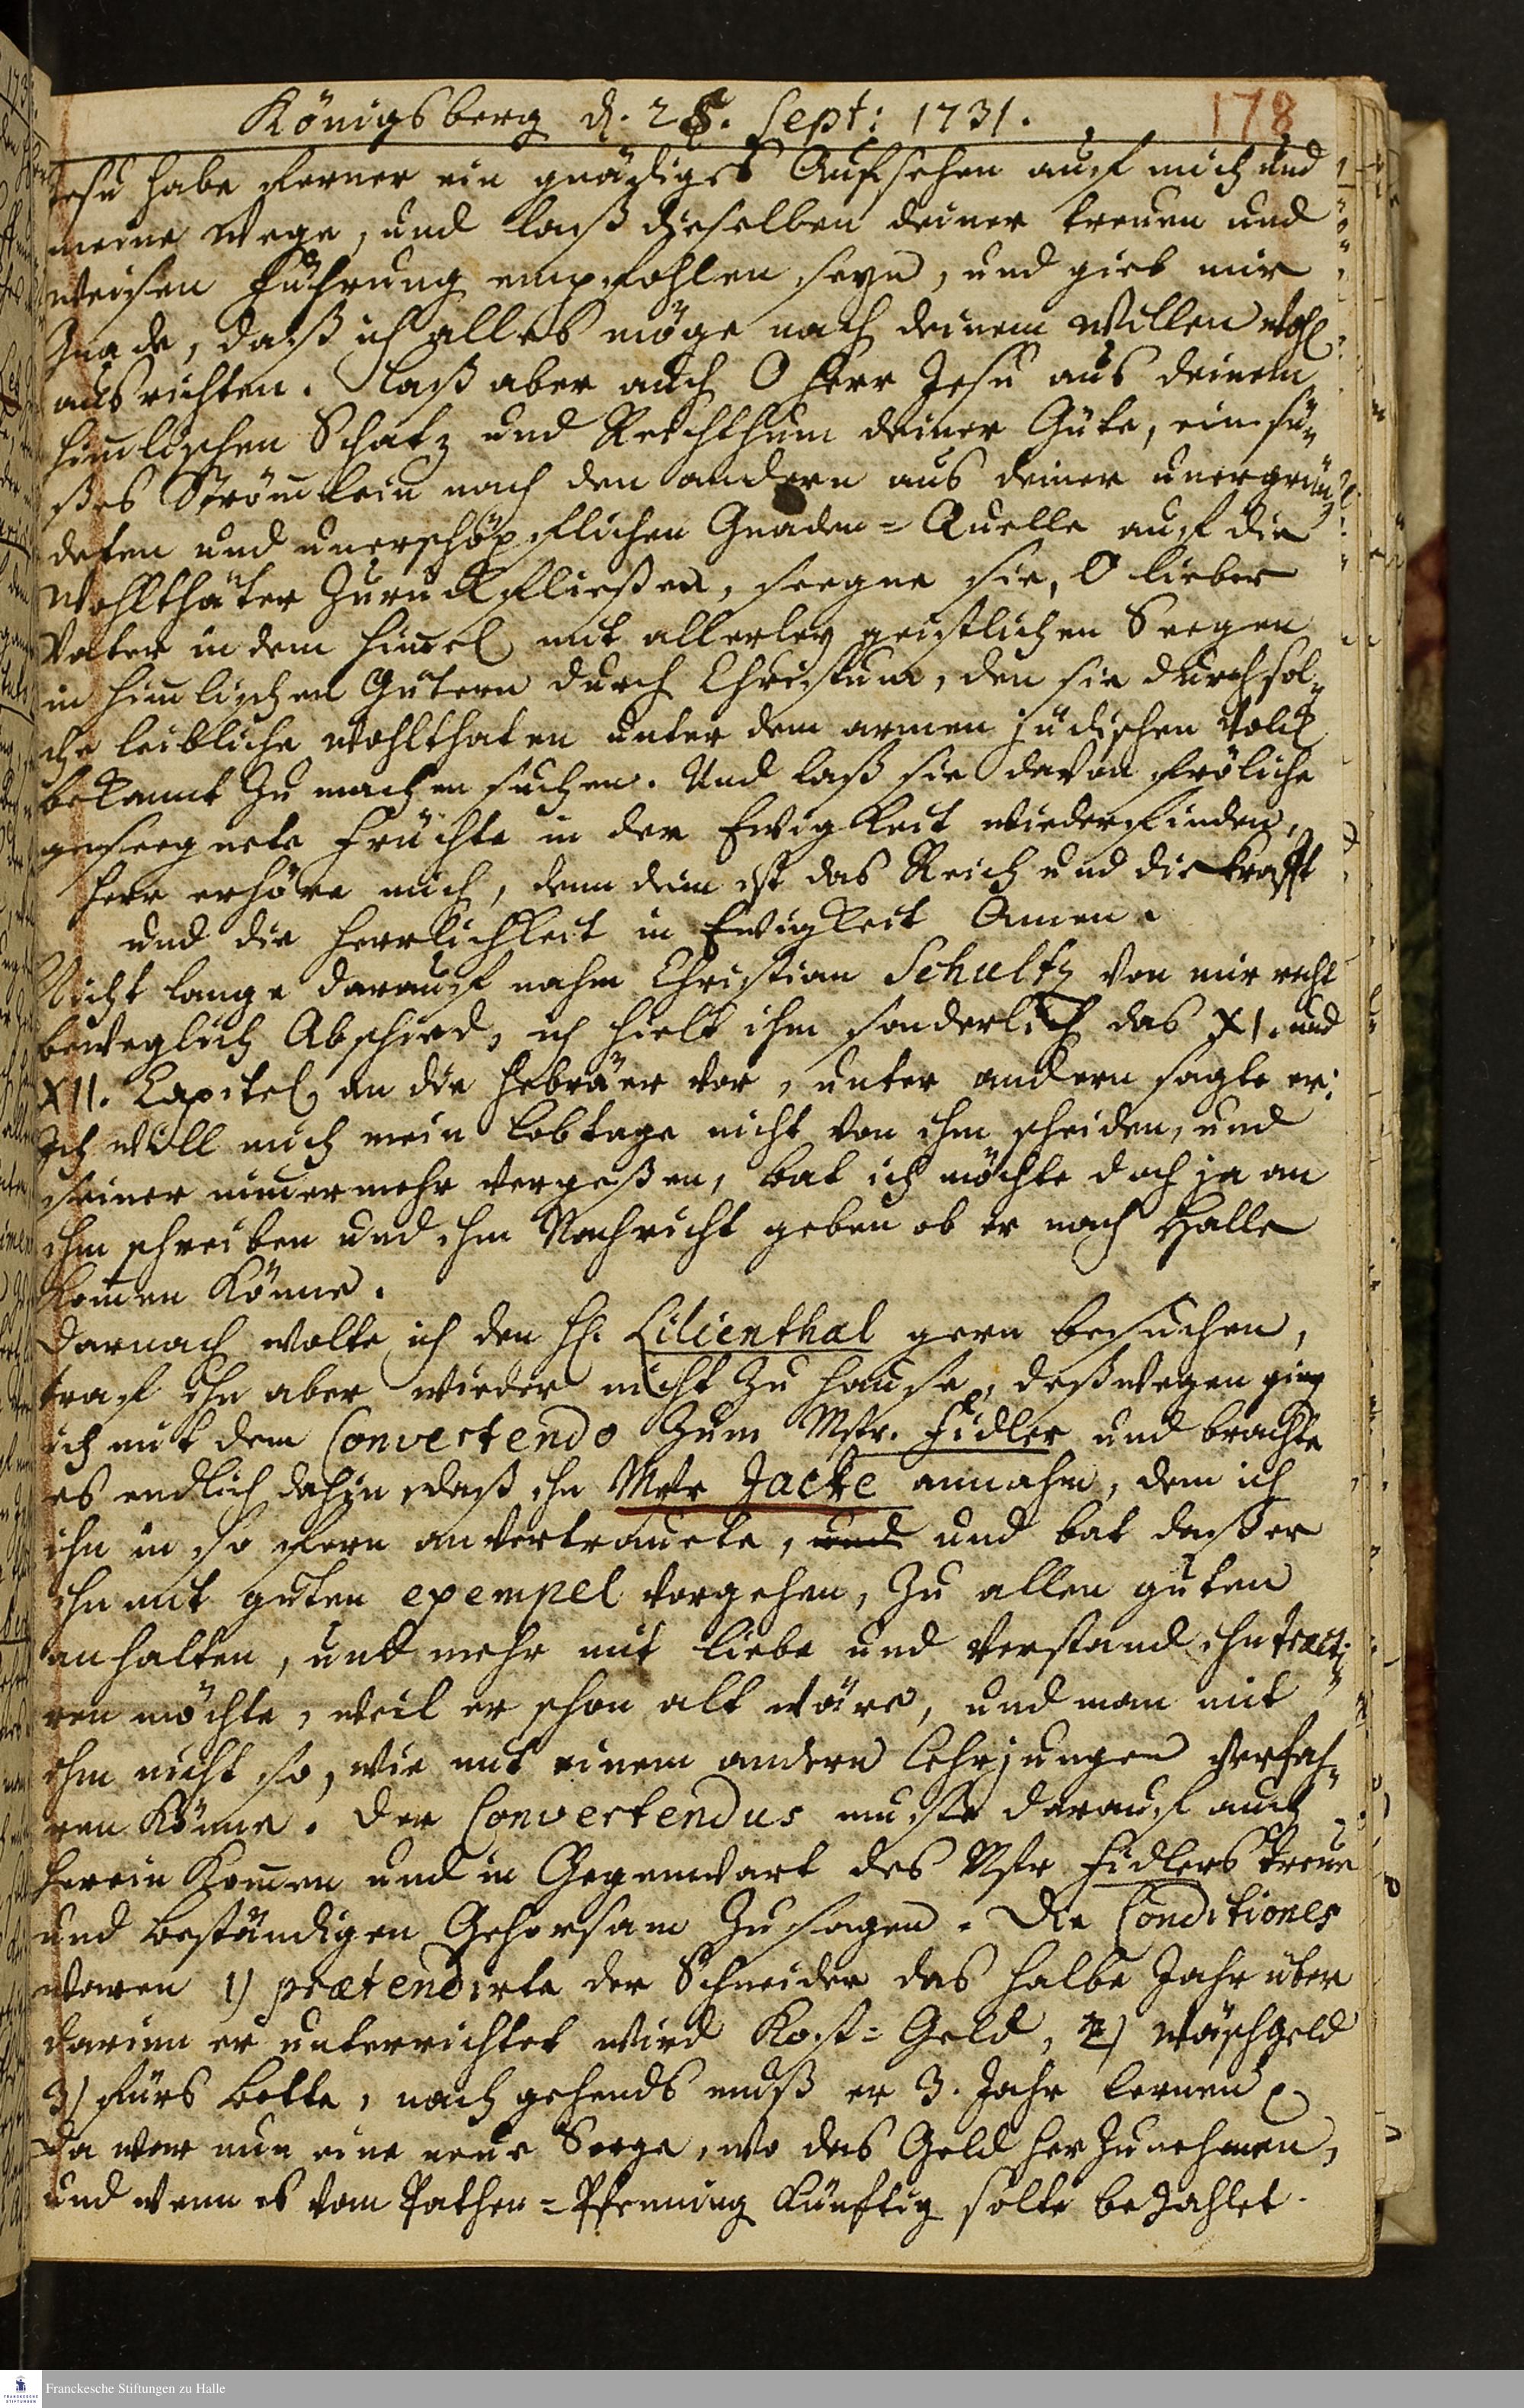 Königsberg d. 28. Sept: 1731.
178
Jesu habe ferner ein gnädiges Aufsehen auf mich und
meine Wege, und laß dieselben deiner treuen und
weisen Führung empfohlen seyn, und gieb mir
Gnade, daß ich alles möge nach deinem Willen wohl
ausrichten. Laß aber auch O Herr Jesu aus deinem
him̅lischen Schatz und Reichthum deiner Güte, ein sü-
ßes Ström̅lein nach den andern aus deiner unergrün-
deten und unerschöpflichen Gnaden=Quelle auf die
Wohlthäter zurückfließen, seegne sie, O lieber
Vater in dem Him̅el mit allerley geistlichen Seegen
in him̅lischen Gütern durch Christum, den sie durch sol-
che leibliche Wohlthaten unter dem armen jüdischen Volck
bekannt zu machen suchen. Und laß sie davon fröliche
geseegnete Früchte in der Ewigkeit wiederfinden,
Herr erhöre mich, denn dein ist das Reich und die Krafft
und die Herrlichkeit in Ewigkeit Amen.
Nicht lange darauf nahm Christian Schultz von mir recht
beweglich Abschied, ich hielt ihm sonderlich das XI. und
XII. Capitel an die Hebräer vor, unter andern sagte er:
Ich will mich mein lebtage nicht von ihm scheiden, und
seiner nim̅ermehr vergeßen, bat ich möchte doch ja an
ihm schreiben und ihm Nachricht geben ob er nach Halle
kom̅en könne.
Darnach wolte ich den H. Lilienthal gern besuchen,
traf ihn aber wieder nicht zu Hause, deßwegen ging
ich mit dem Convertendo zum Mstr. Fidler und brachte
es endlich dahin, daß ihn Mstr Jacke annahm, dem ich
ihn in so fern anvertrauete, und und bat daß er
ihn mit guten exempel vorgehen, zu allen guten
anhalten, und mehr mit Liebe und Verstand ihn tracti-
ren möchte, weil er schon alt wäre, und man mit
ihm nicht so, wie mit einem andern Lehrjungen verfah-
ren könne. Der Convertendus muste darauf auch
herein kom̅en und in Gegenwart des Mstr Fidlers treue
und beständigen Gehorsam zusagen. Die Conditiones
waren 1) prætendirte der Schneider das halbe Jahr über
darinn er unterrichtet wird Kost=Geld, 2) Wäschgeld
3) fürs Bette, nachgehends muß er 3. Jahr lernen.
Da war nun eine neue Sorge, wo das Geld herzunehmen,
und wenn es vom Pathen=Pfenning künftig solte bezahlet
Franckesche Stiftungen zu Halle